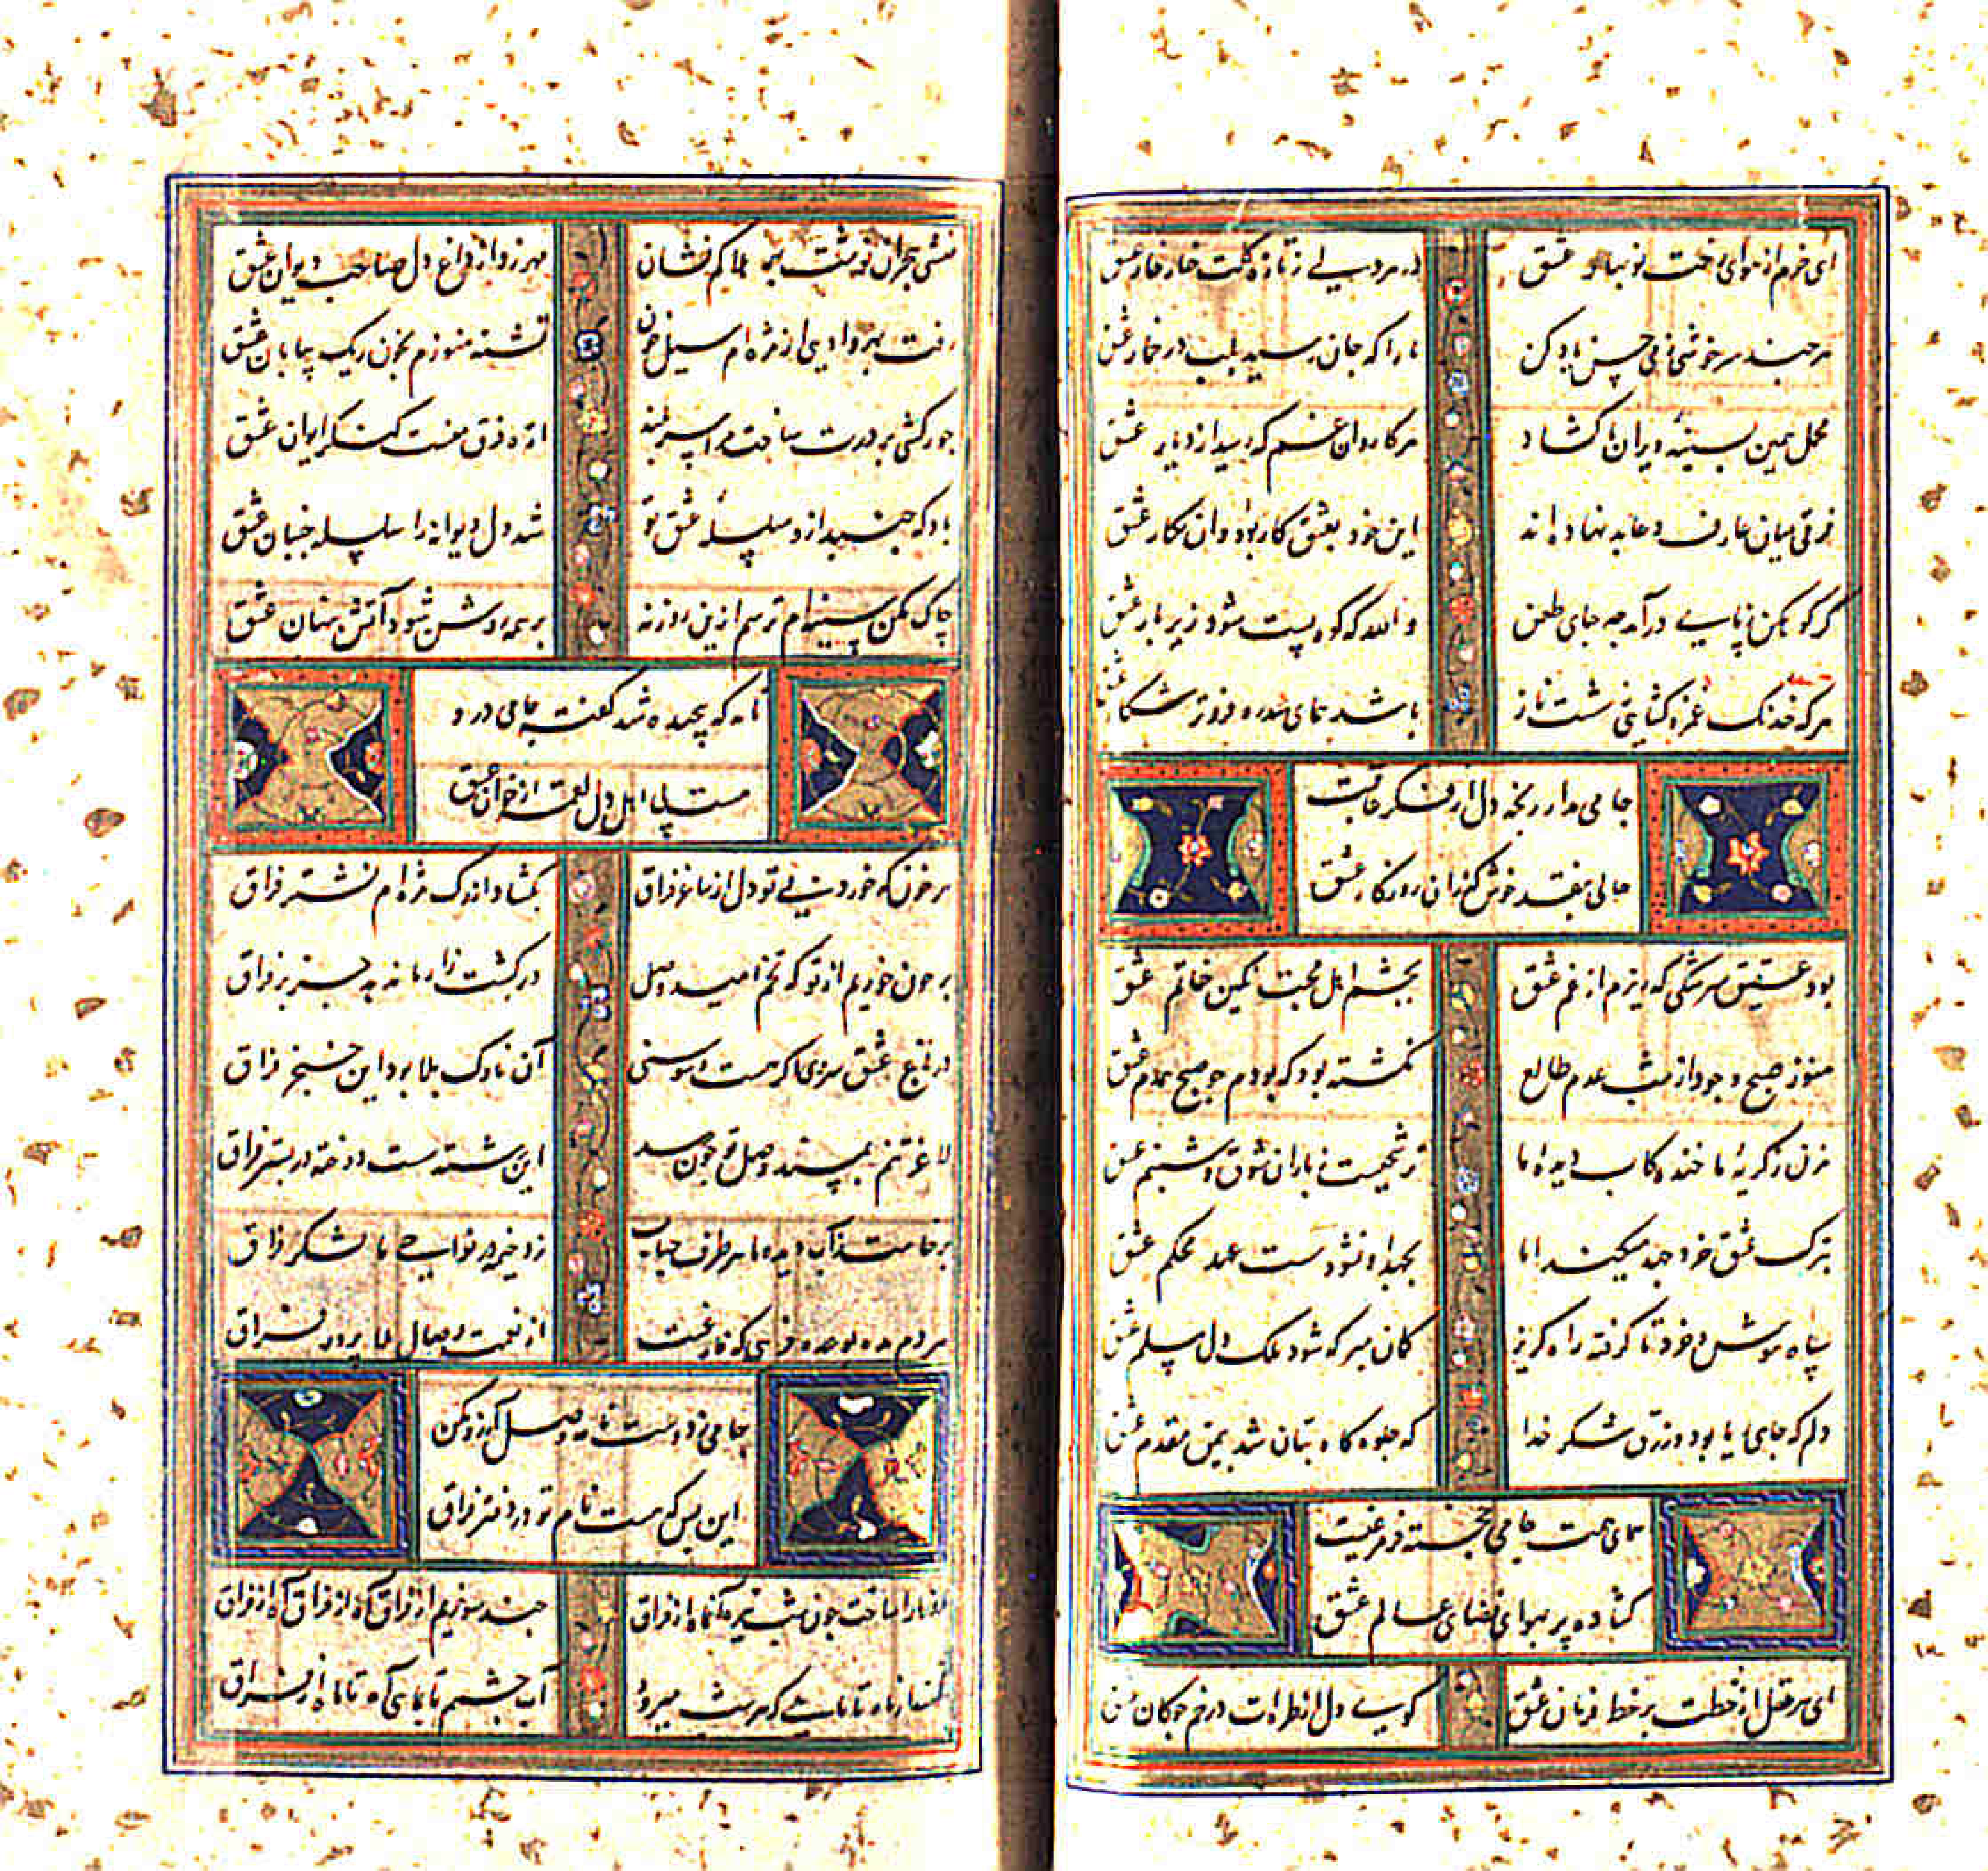 ای خرم از هوای رخت نوبهار عشق
در هر دلی ز تازه گلت خار خار عشق
هر چند سرخوشی ز می حسن یاد کن
ما را که جان رسید بلب در خمار عشق
محمل همین بسینه ویران ما کشاد
هر کاروان غم که رسید از دیار عشق
فرقی میان عارف و عابد نهاده اند
این خود بعشق کار بود وان بکار عشق
گر کوهکن ز پای در آمد چه جای طعن
والله که کوه پست شود زیر بار عشق
هر که خدنک غمزه کشایی ز شست ناز
باشد همای سدره فروتر شکار عشق
جامی مدار رنجه دل از فکر عاقبت
حالی بنقد خوش گذران روزگار عشق
بود عقیق سرشکی که ریزم از غم عشق
بچشم اهل محبت نگین خاتم عشق
هنوز صبح وجود از شب عدم طالع
نگشته بود که بودم چو صبح همدم عشق
مزن ز گریه ما خنده کاب دیده ما
ترشحیست ز باران شوق و شبنم عشق
بترک عشق خرد جهد میکند اما
بجهد او نشود سست عهد محکم عشق
سپاه هوش و خرد تا گرفته راه گریز
کمان مبر که شود ملک دل مسلم عشق
دلم که جای ریا بود و زرق شکر خدا
که جلوه گاه بتان شد بیمن مقدم عشق
همای همت جامی خجسته فر مرغیست
گشاده پر بهوای فضای عالم عشق
ای سر عقل از خطت بر خط فرمان عشق
گوی دل از طرهات در خم چوگان عشق
منشی هجران نوشت بهر بلا کم نشان
مهر زد از داغ دل صاحب دیوان عشق
رفت بهر وادیی از مژه ام سیل خون
تشنه هنوزم بخون ریک بیابان عشق
جور کشی بر درت ساخت مرا سربلند
اره فرق منست کنگر ایوان عشق
باد که جنبید ازو سلسله عشق تو
شد دل دیوانه را سلسله جنبان عشق
چاک مکن سینه ام ترسم ازین روزنه
بر همه روشن شود آتش پنهان عشق
نامه که پیچیده شد گفته جامی درو
هست پی اهل دل لقمه از خوان عشق
هر خون که خورد بی تو دل از ساغر فراق
بگشاد از رگ مژه ام نشتر فراق
بر چون خوریم از تو که تخم امید وصل
در کشت زار ما ندهد جز بر فراق
آن ناوک بلا بود این خنجر فراق
لاغر تنم بمسند وصل تو چون رسد
این رشته ایست دوخته در بستر فراق
برخاست زآب دیده ما هر طرف حباب
زد خیمه در نواحی ما لشکر فراق
از نعمت وصال بلا پرور فراق
جامی ز دوست نامه وصل آرزو مکن
این بس که هست نام تو در دفتر فراق
روز ما را ساخت چون شب تیره آن ماه از فراق
چند سوزیم از فراق آه از فراق آه از فراق
آب چشمم تا بماهی آه تا ماه از فراق